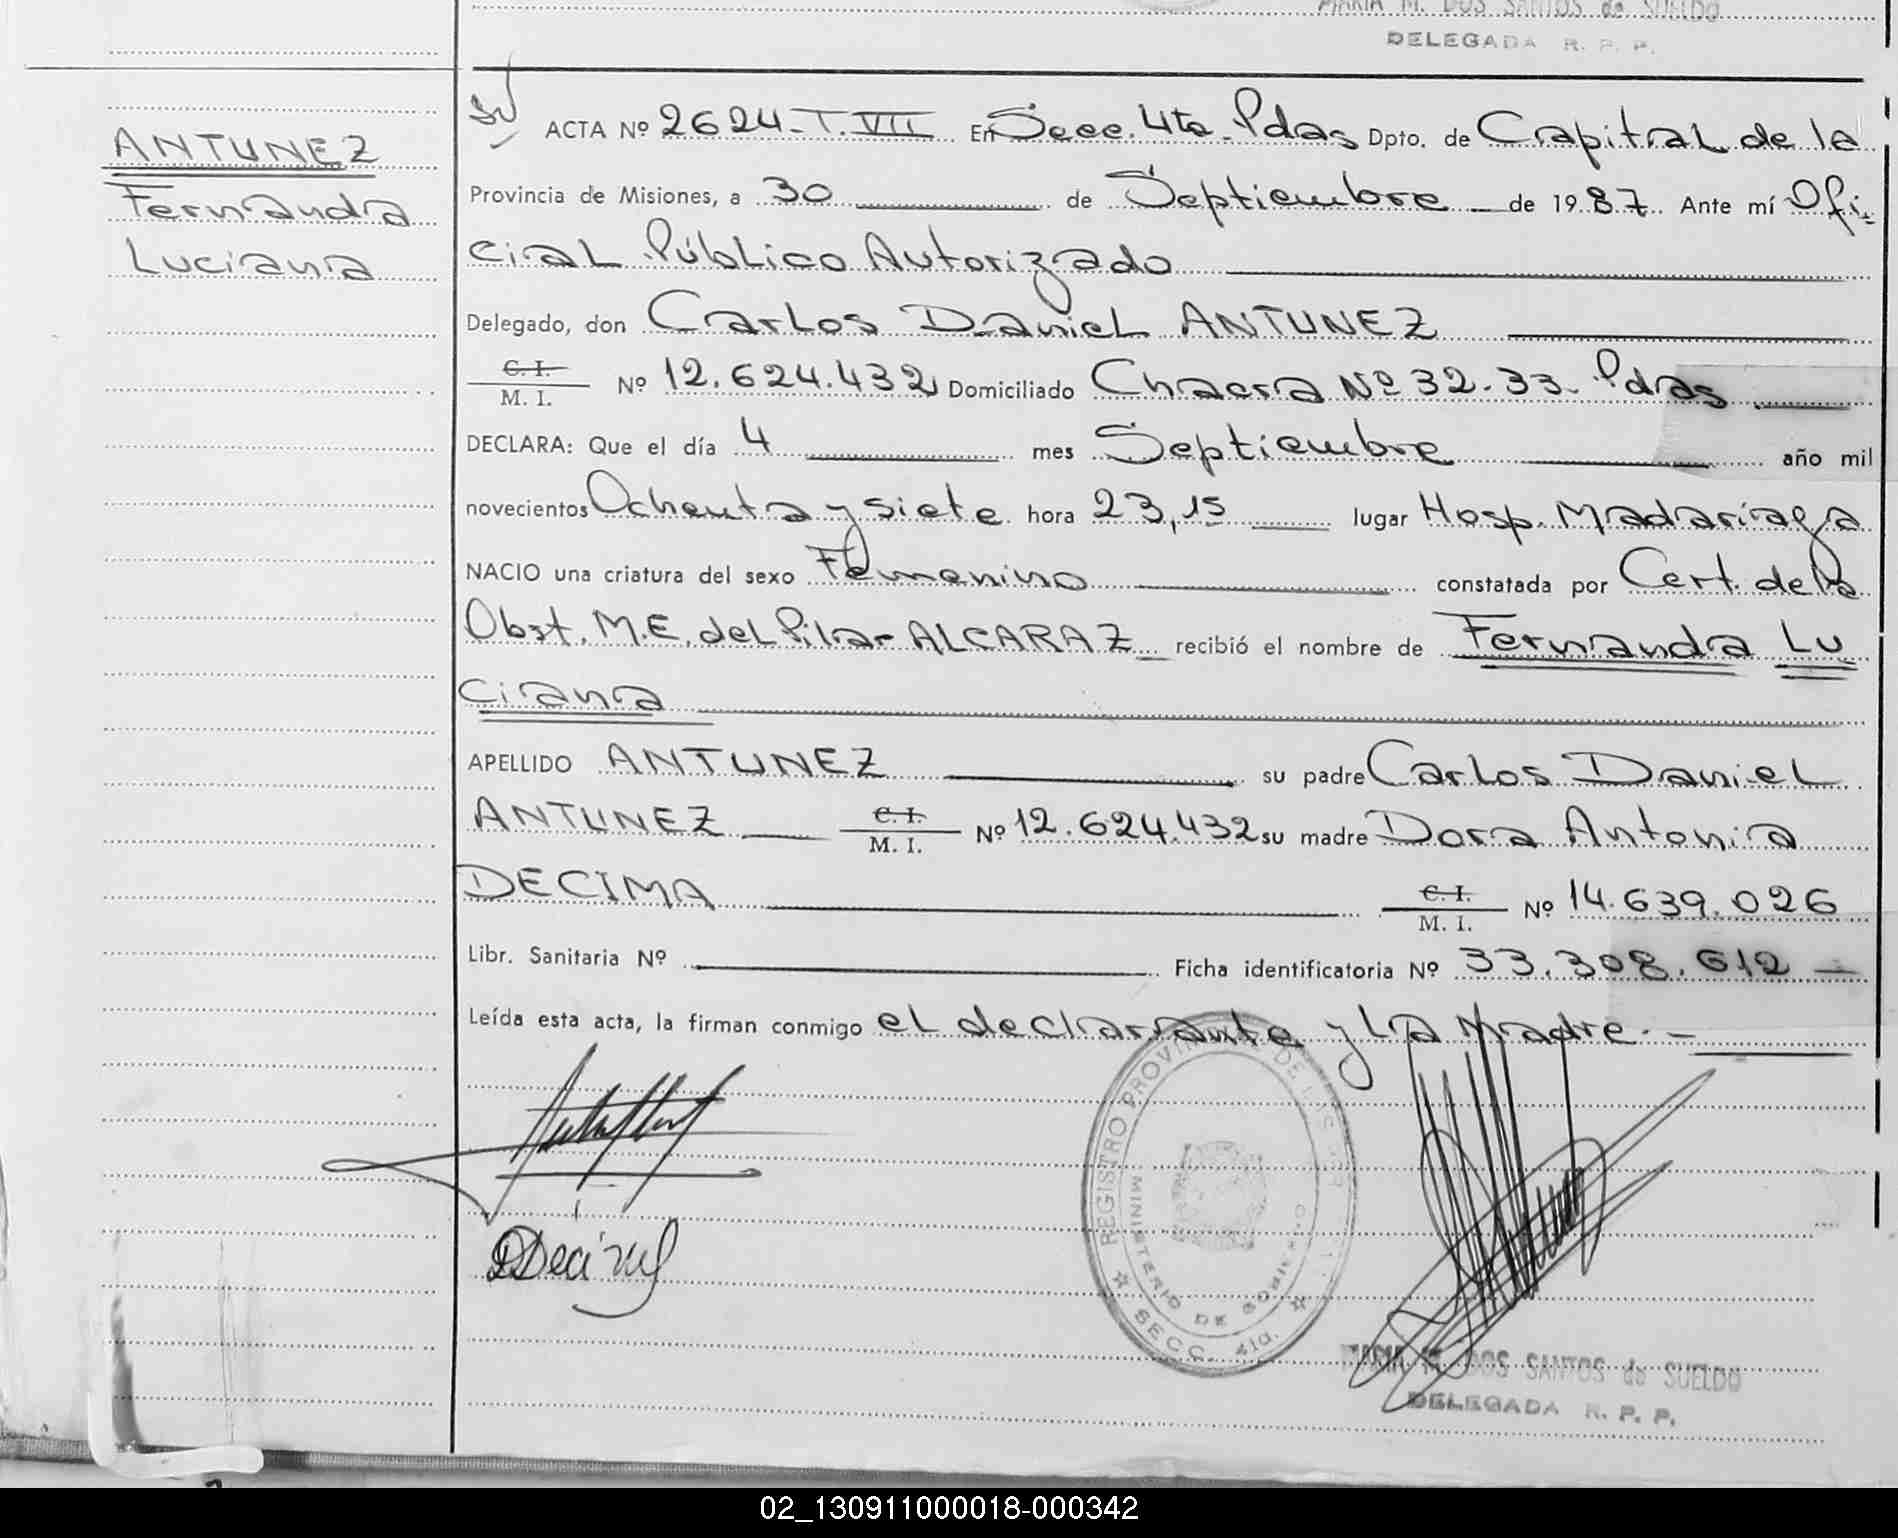 MARIA M. DOS SANTOS de SUELDO
DELEGADA R. P. P.
ANTUNEZ
Fernanda
Luciana
ACTA Nº 2624-T.VII En Secc. 4ta. Pdas Dpto. de Capital de la
Provincia de Misiones, a 30 de Septiembre de 1987. Ante mí Ofi-
cial Público Autorizado
Delegado, don Carlos Daniel ANTUNEZ
C. I.
M. I. Nº 12.624.432 Domiciliado Chacra Nº 32-33- Pdas
DECLARA: Que el día 4 mes Septiembre año mil
novecientos Ochenta y siete hora 23,15 lugar Hosp. Madariaga
NACIO una criatura del sexo Femenino constatada por Cert. de la
Obst. M.E. del Pilar ALCARAZ recibió el nombre de Fernanda Lu
ciana
APELLIDO ANTUNEZ su padre Carlos Daniel
ANTUNEZ C. I. M. I. Nº 12.624.432 su madre Dora Antonia
DECIMA C. I. M. I. Nº 14.639.026
Libr. Sanitaria Nº Ficha identificatoria Nº 33.308.612
Leída esta acta, la firman conmigo el declarante y la Madre.-
REGISTRO PROVINCIAL DE LAS PERSONAS
MINISTERIO DE GOBIERNO
SECC. 4ta.
DDecima
MARIA M. DOS SANTOS de SUELDO
DELEGADA R. P. P.
02_130911000018-000342